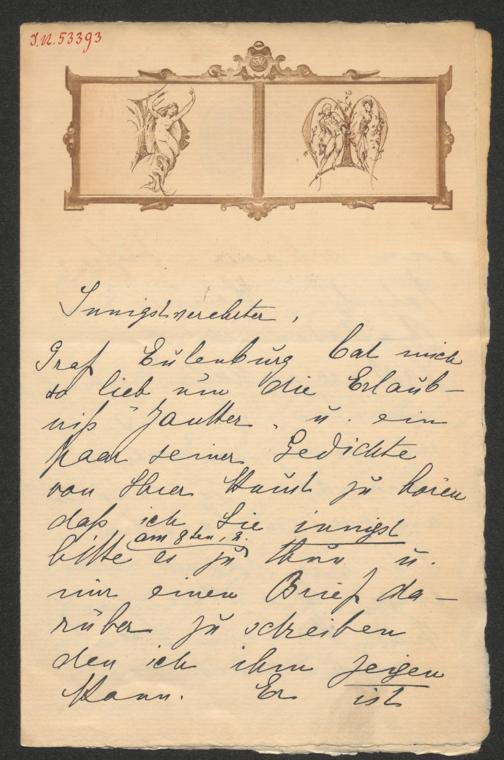 I.N. 53393
Innigstverehrter,
Graf Eulenburg bat mich
so lieb um die Erlaub-
niß u. ein
paar seiner Gedichte
von Ihrer Kunst zu hören
daß ich Sie innigst
am 8ten
bitte es zu thun u.
mir einen Brief da-
rüber zu schreiben
den ich ihm zeigen
kann. Er ist